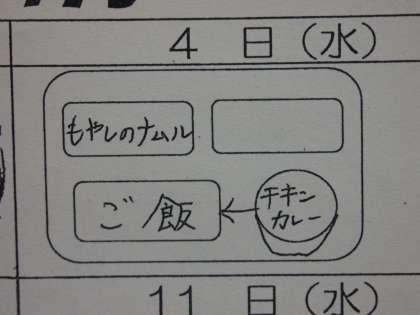 4 日(水)
もやしのナムル
ご飯
チキン
カレー
11 日(水)